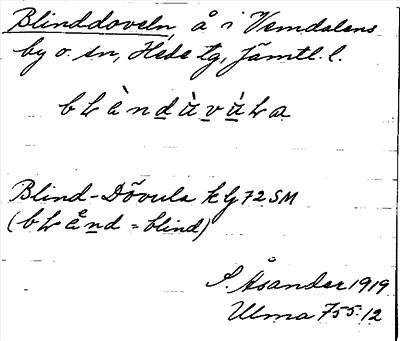 Blinddoveln, å i Vemdalens
by o. sn, Hede tg, Jämtl. l.
bLàndùvùLa
Blind-Dövula kg 72 SM
(bLånd = blind)
S. Åsander 1919
Ulma 755:12